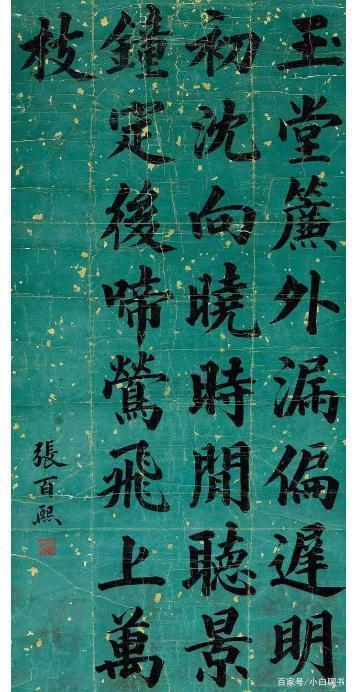 玉堂簾外漏偏遲明
初沈向曉時閒聽景
鐘定後啼鶯飛上萬
枝
張百熙
百家号/小白聊书